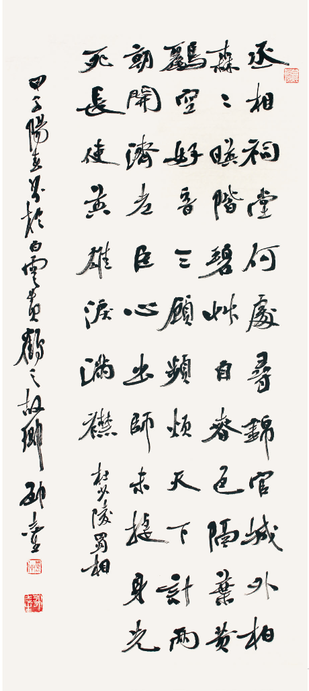 丞相祠堂何處尋錦官城外柏
森〻映階碧艸自春色隔葉黃
鸝空好音三顧頻煩天下計兩
朝開濟老臣心出師未捷身先
死長使英雄淚滿襟 杜少陵蜀相
甲子陽於白雲黃鶴之故鄉